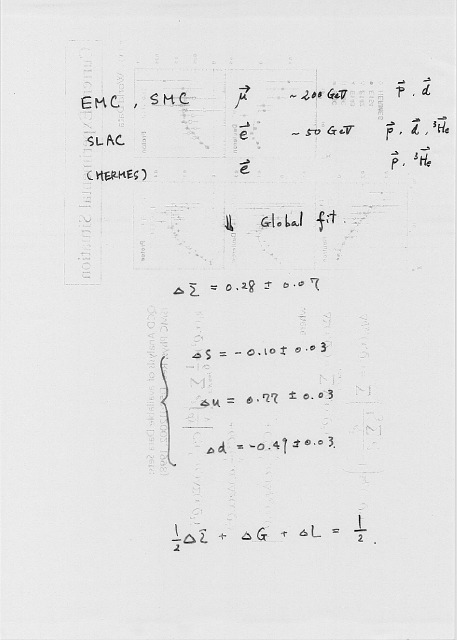 EMC , SMC μ⃗ ~ 200 GeV p⃗ . d⃗
SLAC e⃗ ~ 50 GeV p⃗ . d⃗ . ³H⃗e
(HERMES) e⃗ p⃗ . ³H⃗e
⇓ Global fit.
ΔΣ = 0.28 ± 0.07
ΔS = -0.10 ± 0.03
Δu = 0.77 ± 0.03
Δd = -0.49 ± 0.03.
½ΔΣ + ΔG + ΔL = ½.